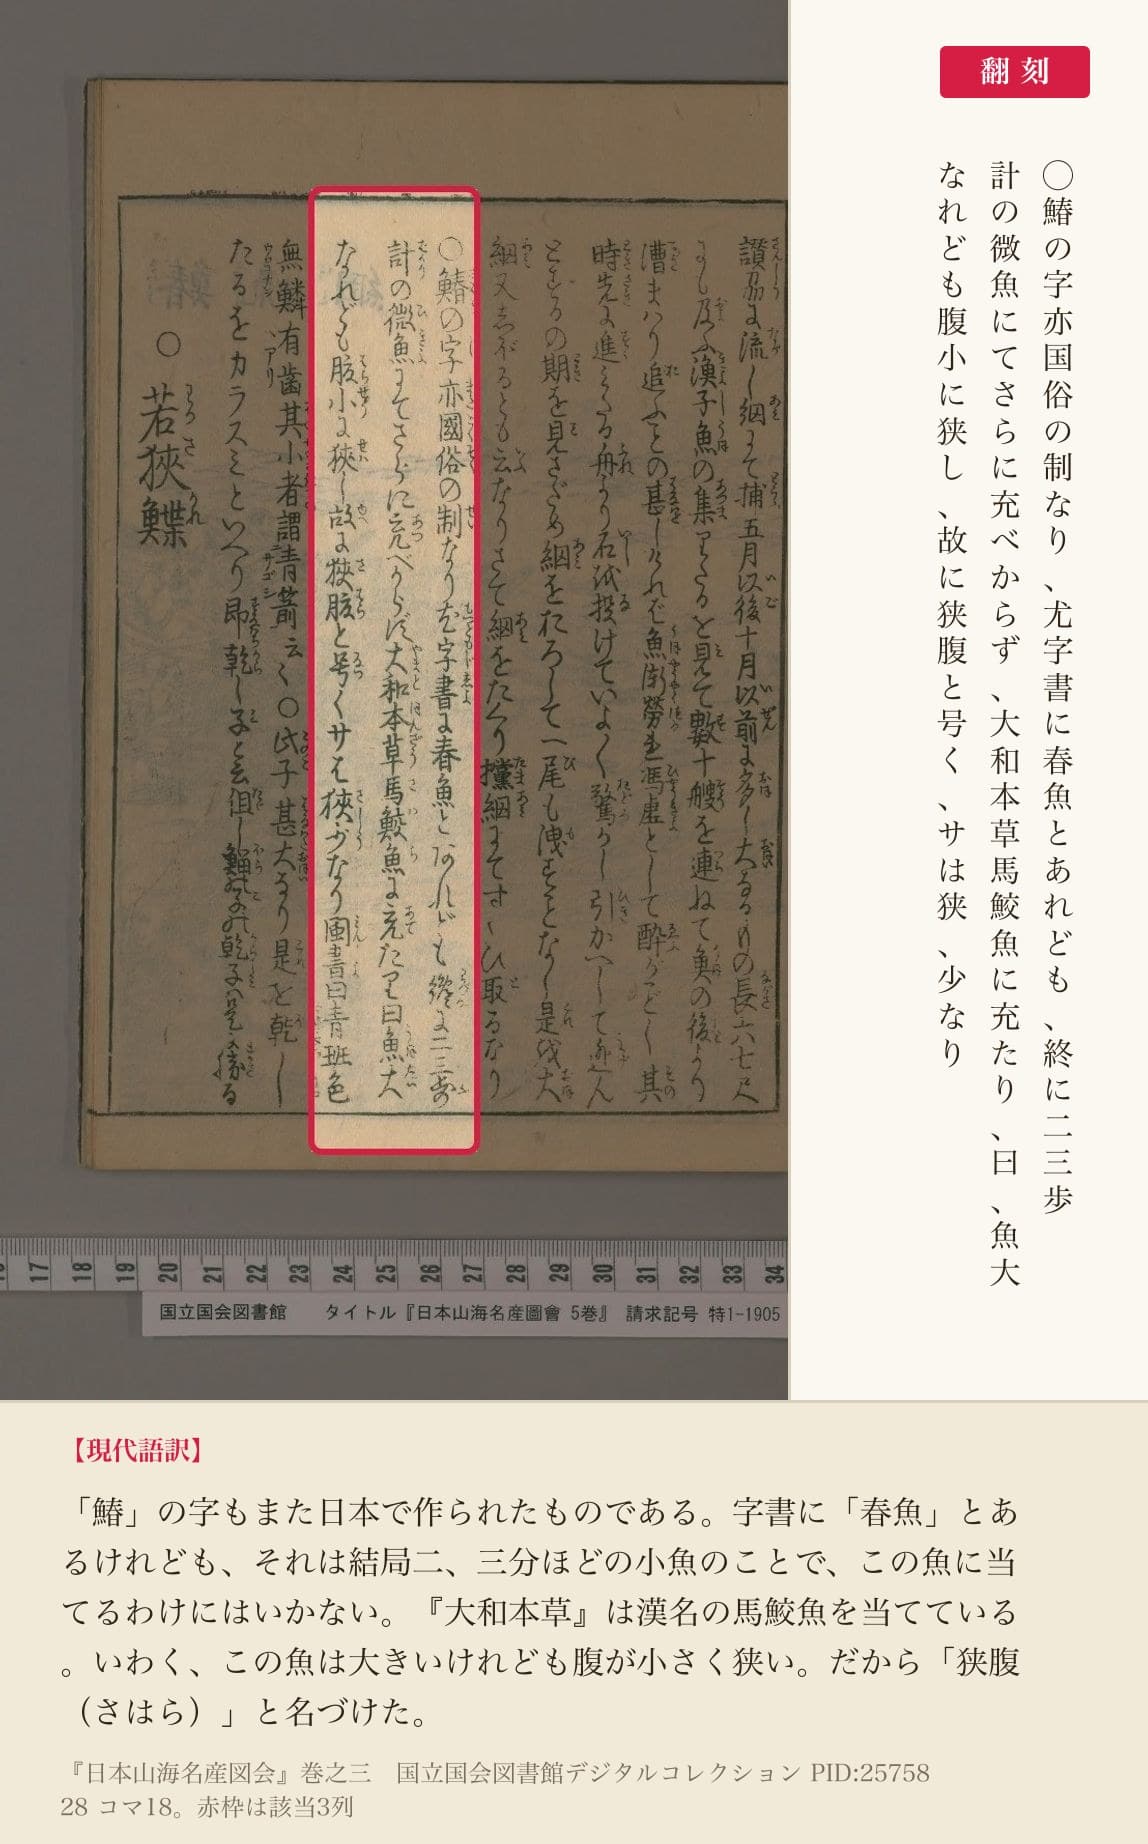 翻刻
〇鰆の字亦国俗の制なり、尤字書に春魚とあれども、終に二三歩
計の微魚にてさらに充べからず、大和本草馬鮫魚に充たり、曰、魚大
なれども腹小に狭し、故に狭腹と号く、サは狭、少なり
讃州に流し網にて捕五月以後十月以前に多し大なるものの長六七尺
時先に進みたる舟より石を投げていよ〱驚かし引かへして逃ん
とするの期を見さだめ網をおろして一尾も洩すことなし是を大
網又しぼるとも云なりさて網をたぐり攩網にてすくひ取るなり
〇鰆の字亦國俗の制なり尤字書に春魚とあれども終に二三歩
計の微魚にてさらに充べからず大和本草馬鮫魚に充たり曰魚大
なれども腹小に狭し故に狭腹と号くサは狭少なり閩書曰青斑色
無鱗有歯其小者謂青箭云〻〇此子甚大なり是を乾し
たるをカラスミといへり
〇若狭鰈
17 18 19 20 21 22 23 24 25 26 27 28 29 30 31 32 33 34
国立国会図書館 タイトル『日本山海名産圖會 5巻』 請求記号 特1-1905
【現代語訳】
「鰆」の字もまた日本で作られたものである。字書に「春魚」とあ
るけれども、それは結局二、三分ほどの小魚のことで、この魚に当
てるわけにはいかない。『大和本草』は漢名の馬鮫魚を当てている
。いわく、この魚は大きいけれども腹が小さく狭い。だから「狭腹
（さはら）」と名づけた。
『日本山海名産図会』巻之三 国立国会図書館デジタルコレクション PID:25758
28 コマ18。赤枠は該当3列